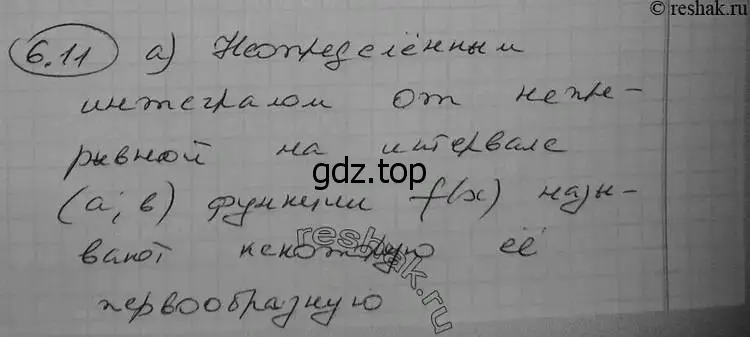 © reshak.ru
6.11 а) Неопределённым
интегралом от непре-
рывной на интервале
gdz.top
(a; b) функции f(x) назы-
вают некоторую её
reshak.ru
первообразную